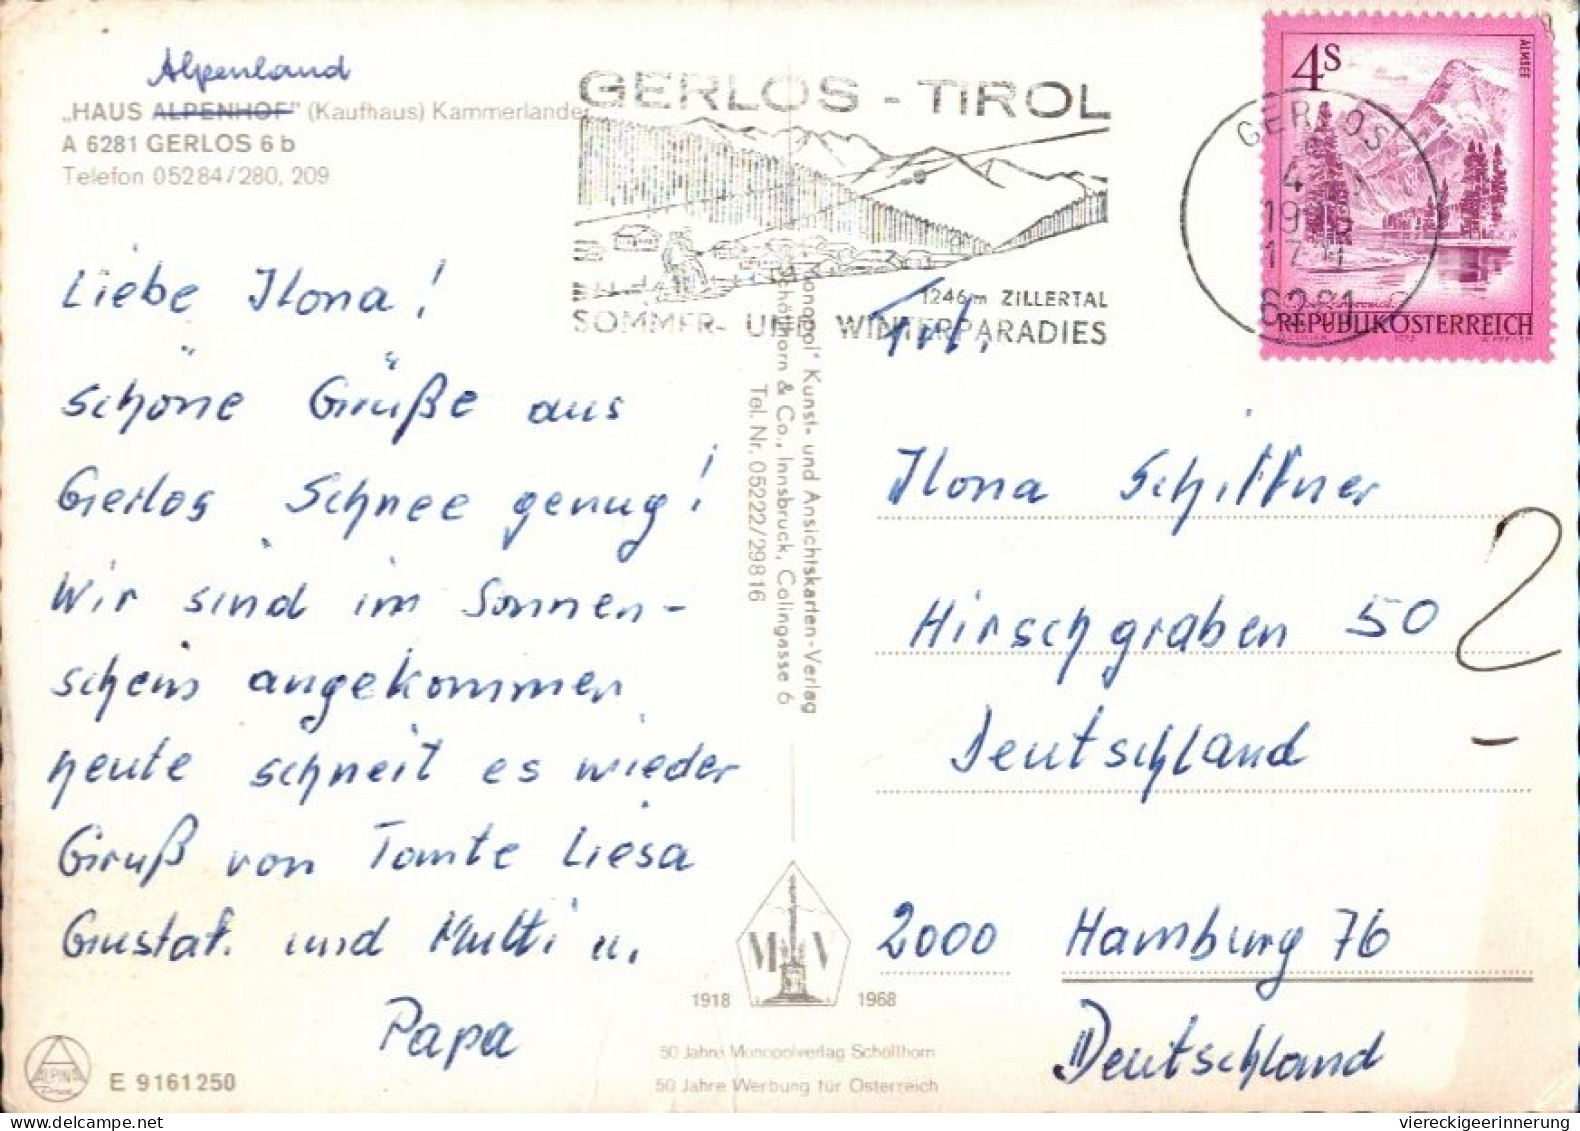 Alpenland
„HAUS ALPENHOF" (Kaufhaus) Kammerlander
A 6281 GERLOS 6 b
Telefon 05284/280, 209
Liebe Ilona!
schöne Grüße aus
Gerlos Schnee genug!
Wir sind im Sonnen-
schein angekommen
heute schneit es wieder
Gruß von Tante Liesa
Gustaf. und Mutti u.
Papa
ALPINA
E 9161250
GERLOS - TIROL
1246m ZILLERTAL
SOMMER- UND WINTERPARADIES
Monopol" Kunst- und Ansichtskarten-Verlag
Schöllhorn & Co., Innsbruck, Colingasse 6
Tel. Nr. 05222/29816
M V
1918 1968
50 Jahre Monopolverlag Schöllhorn
50 Jahre Werbung für Österreich
4S
ALMSEE
REPUBLIK ÖSTERREICH
GERLOS
6281
Frl.
Ilona Schiffner
Hirschgraben 50
Deutschland
2000 Hamburg 76
Deutschland
viereckigeerinnerung